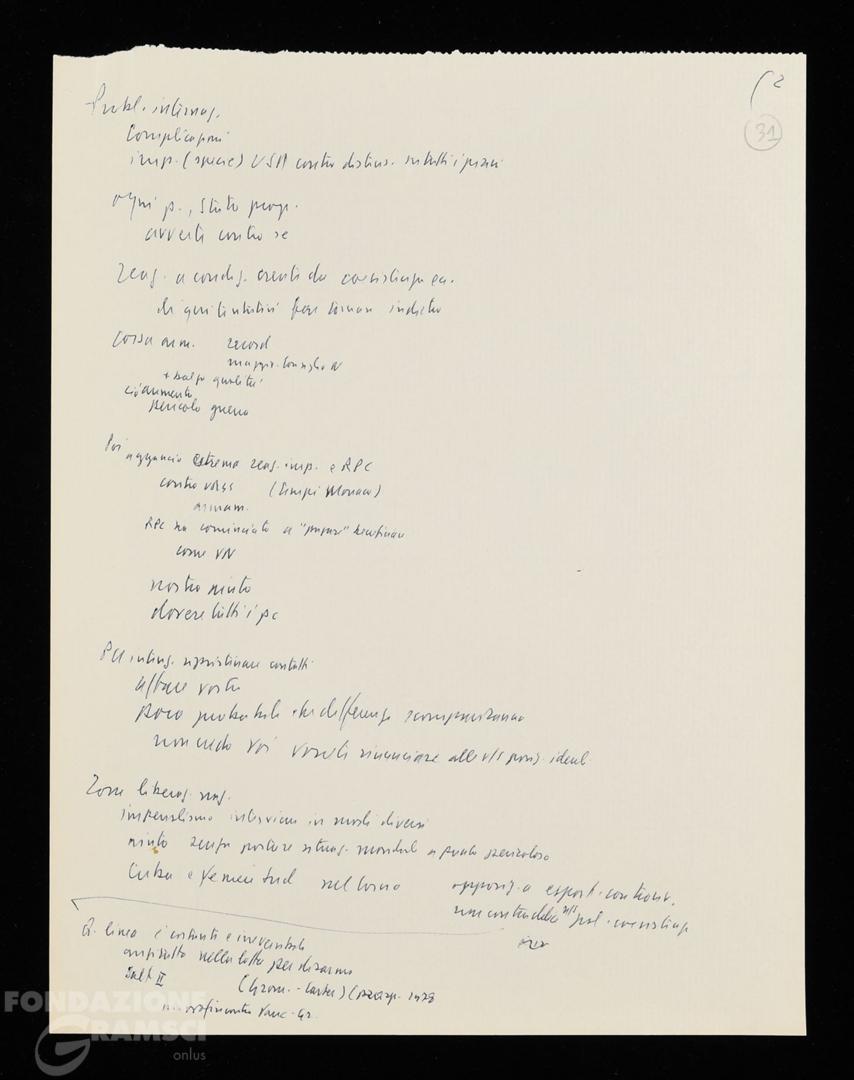 2
31
Probl. internaz.
Complicazioni
imp. (specie) USA contro distens. in tutti i paesi
ogni p., Stato progr.
avverte contro se
reaz. a condiz. create da coesistenza ea.
di qui tentativi far tornare indietro
Corsa arm. record
maggio Consiglio N
+ balzo qualità
ciò aumenta
pericolo guerra
Poi aggancio estrema reaz. imp. e RPC
contro URSS (tempi Monaco)
armam.
RPC ha cominciato a "punire" recalcitranti
come VN
nostro aiuto
dovere tutti i pc
PCI intenz. ripristinare contatti
affare vostro
poco probabile che differenze scompariranno
non credo voi vorrete rinunciare alle v/s posiz. ideal.
Zone liberaz. naz.
imperialismo interviene in modi diversi
aiuto senza portare situaz. mondiale a punto pericoloso
Cuba e Yemen Sud nel Corno
opposiz. a esport. controriv.
non contraddice n/s pol. coesistenza
pac
Q. linea è costante e invariabile
anzitutto nella lotta per disarmo
Salt II (Grom. - Carter) (
Vanc - Gr.
FONDAZIONE
GRAMSCI
onlus